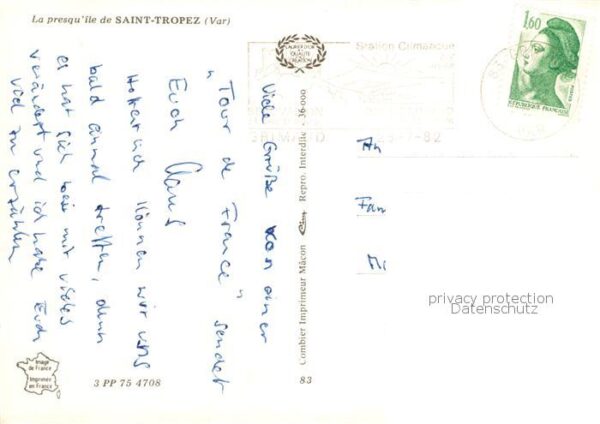 La presqu'île de SAINT-TROPEZ (Var)
Viele Grüße von einer
"Tour de France" sendet
Euch Claus
Hoffentlich können wir uns
bald einmal treffen, denn
es hat sich bei mir vieles
verändert und ich habe Euch
viel zu erzählen
LAURIER D'OR
DE LA
QUALITÉ
CRÉATION
Combier Imprimeur Mâcon Cim Repro. Interdite - 36-000
Station Climatique
GRIMAUD
-7-82
83
VAR
1,60
RÉPUBLIQUE FRANÇAISE
An
Fam
privacy protection
Datenschutz
Image
de France
Imprimée
en France
3 PP 75 4708
83